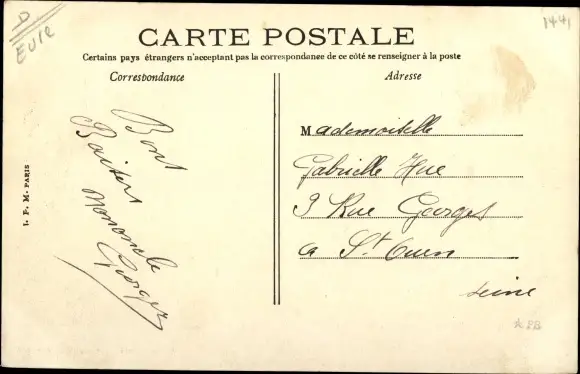 D
EURE
1441
CARTE POSTALE
Certains pays étrangers n'acceptant pas la correspondance de ce côté se renseigner à la poste
Correspondance
Adresse
Bons
Baisers
Georges
I. P. M. PARIS
Mademoiselle
Gabrielle Hue
3 Rue Georges
a St Ouen
Seine